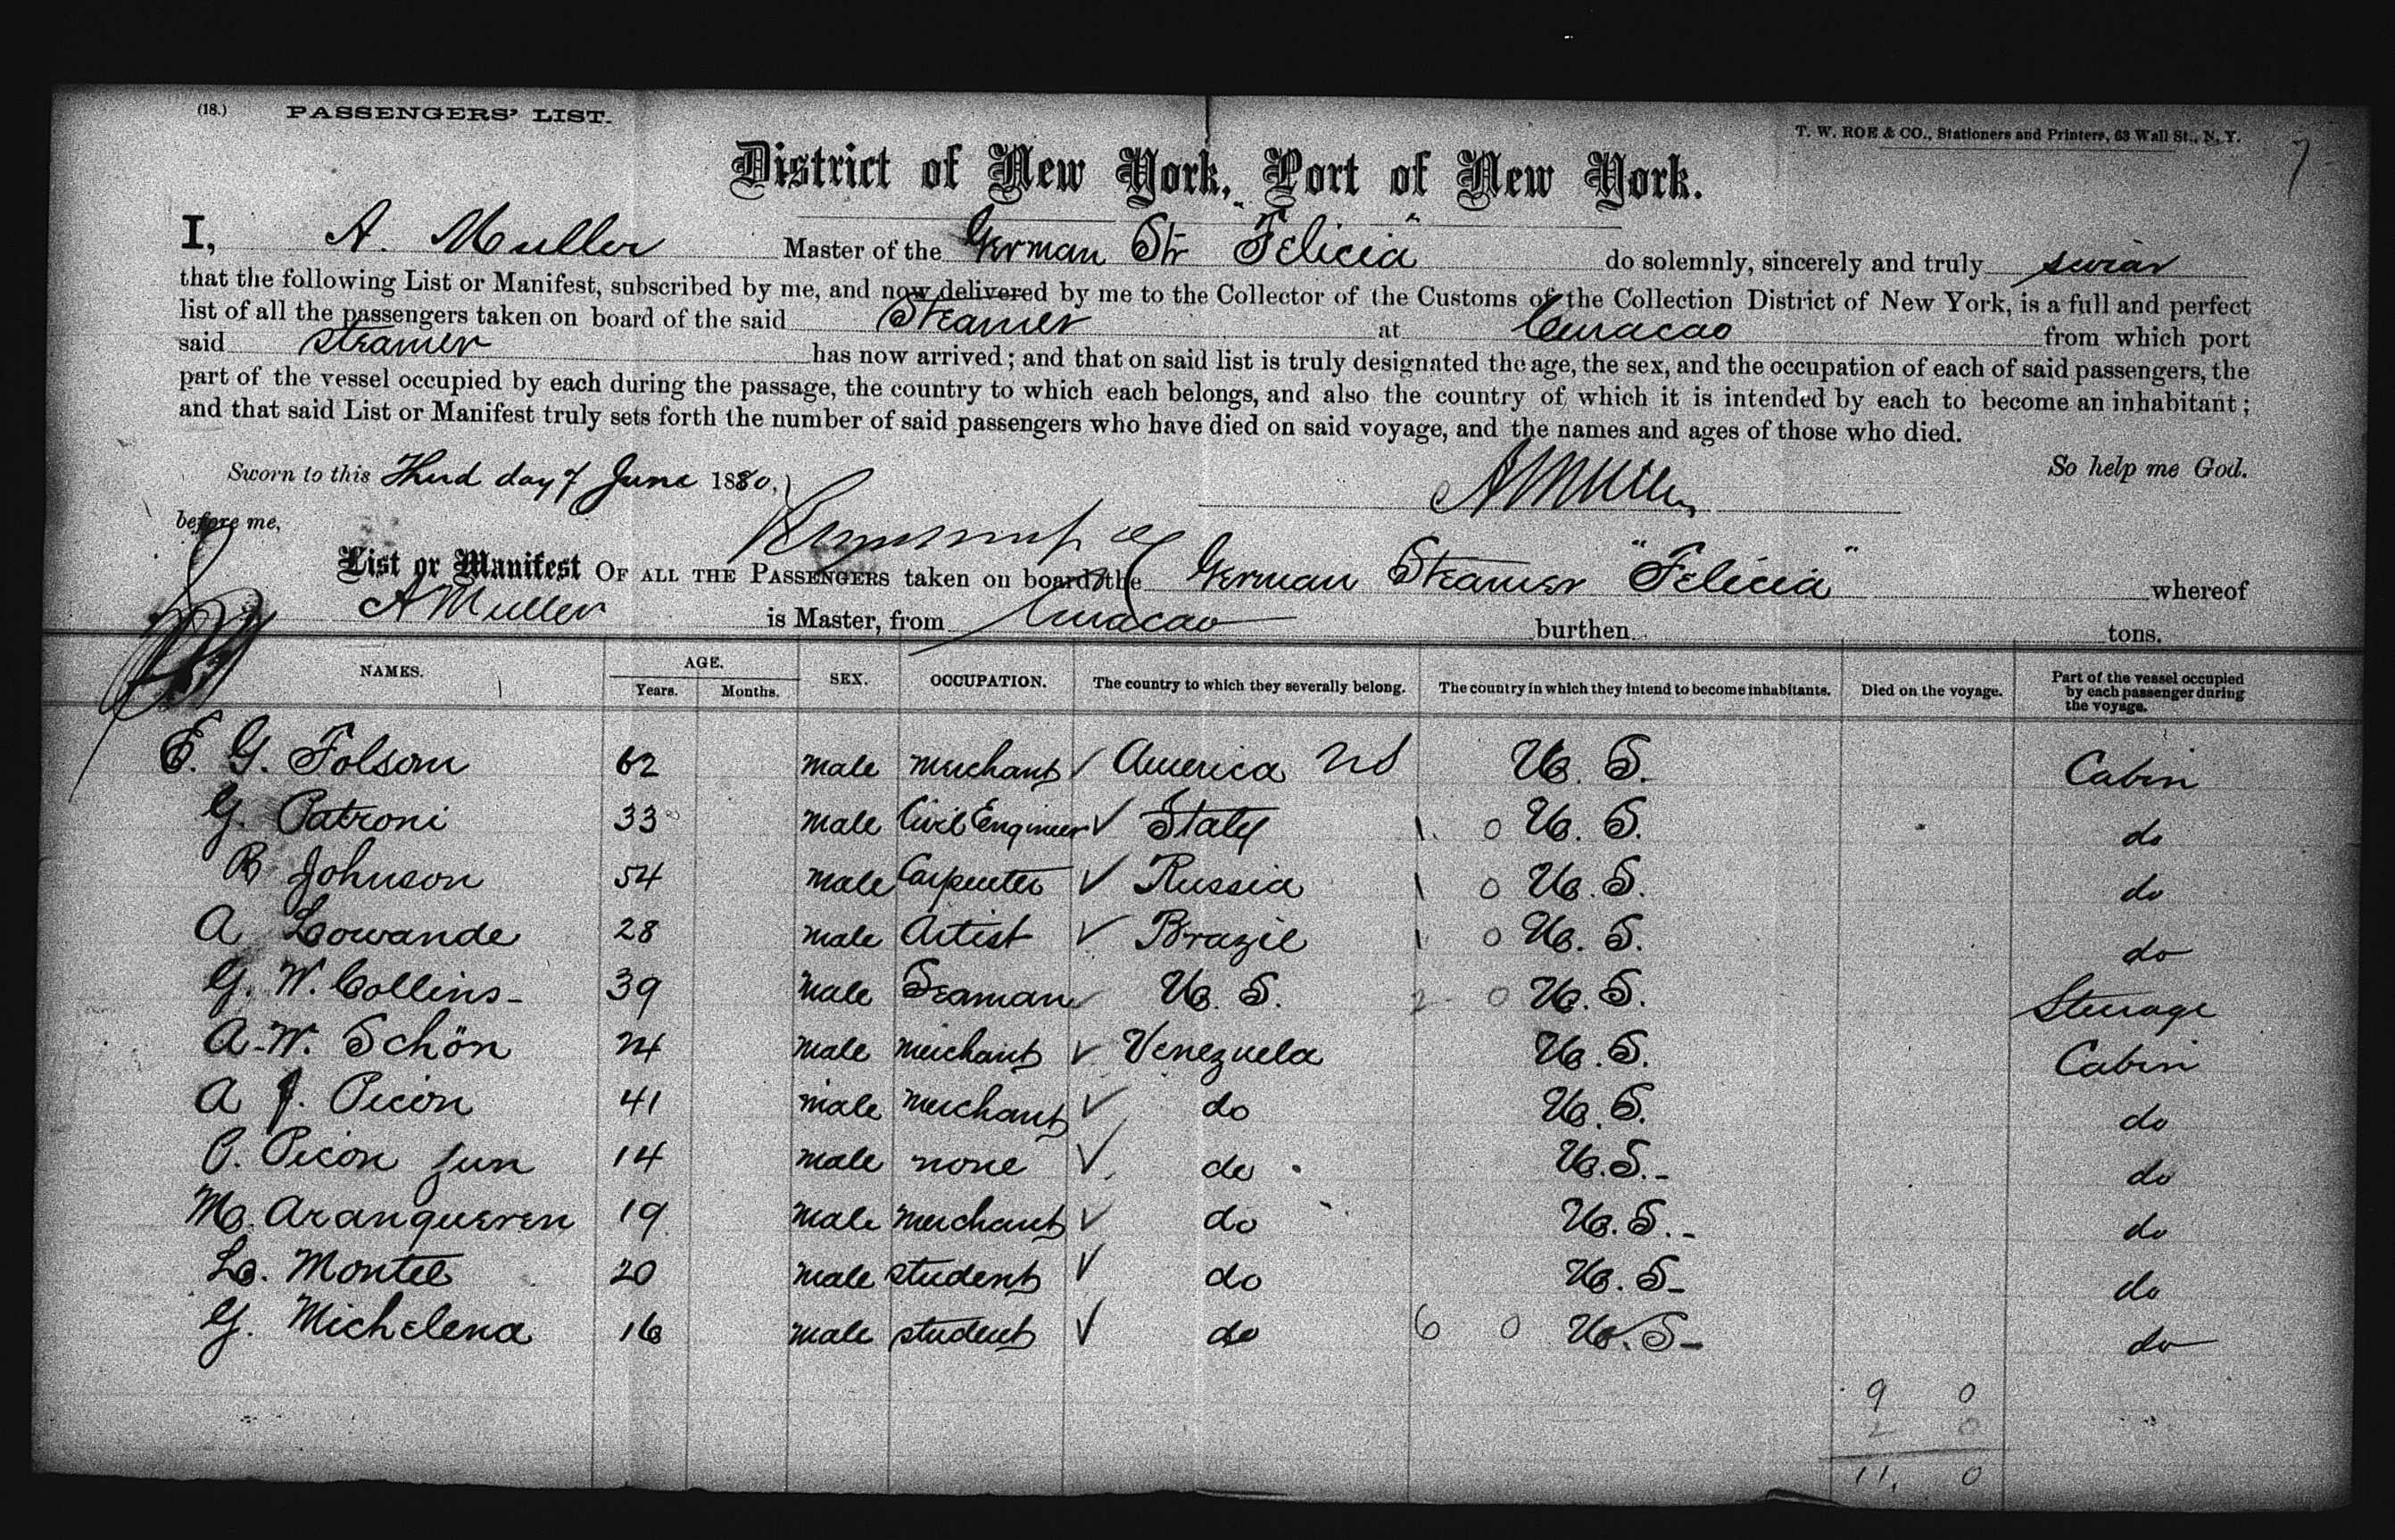 (18.) PASSENGERS' LIST.
T. W. ROE & CO., Stationers and Printers, 63 Wall St., N. Y.
7
District of New York, Port of New York.
I, A. Muller Master of the German Str "Felicia" do solemnly, sincerely and truly swear
that the following List or Manifest, subscribed by me, and now delivered by me to the Collector of the Customs of the Collection District of New York, is a full and perfect
list of all the passengers taken on board of the said Steamer at Curacao from which port
said steamer has now arrived; and that on said list is truly designated the age, the sex, and the occupation of each of said passengers, the
part of the vessel occupied by each during the passage, the country to which each belongs, and also the country of which it is intended by each to become an inhabitant;
and that said List or Manifest truly sets forth the number of said passengers who have died on said voyage, and the names and ages of those who died.
Sworn to this Third day of June 1880, So help me God.
A Muller
before me,
List or Manifest OF ALL THE PASSENGERS taken on board the German Steamer "Felicia" whereof
A Muller is Master, from Curacao burthen tons.
NAMES. AGE. Years. Months. SEX. OCCUPATION. The country to which they severally belong. The country in which they intend to become inhabitants. Died on the voyage. Part of the vessel occupied by each passenger during the voyage.
E. G. Folsom 62 male merchant ✓ America US U. S. Cabin
G. Patroni 33 male Civil Engineer ✓ Italy 1 0 U. S. do
B Johnson 54 male Carpenter ✓ Russia 1 0 U. S. do
A Lowande 28 male Artist ✓ Brazil 1 0 U. S. do
G. W. Collins- 39 male Seaman ✓ U. S. 2 0 U. S. Sterrage
A. W. Schön 24 male merchant ✓ Venezuela U. S. Cabin
A J. Picon 41 male merchant ✓ do U. S. do
P. Picon jun 14 male none ✓ do U. S.- do
M. Aranqueren 19 male merchant ✓ do U. S.- do
L. Montel 20 male student ✓ do U. S- do
G. Michelena 16 male student ✓ do 6 0 U. S- do
9 0
2 0
11. 0